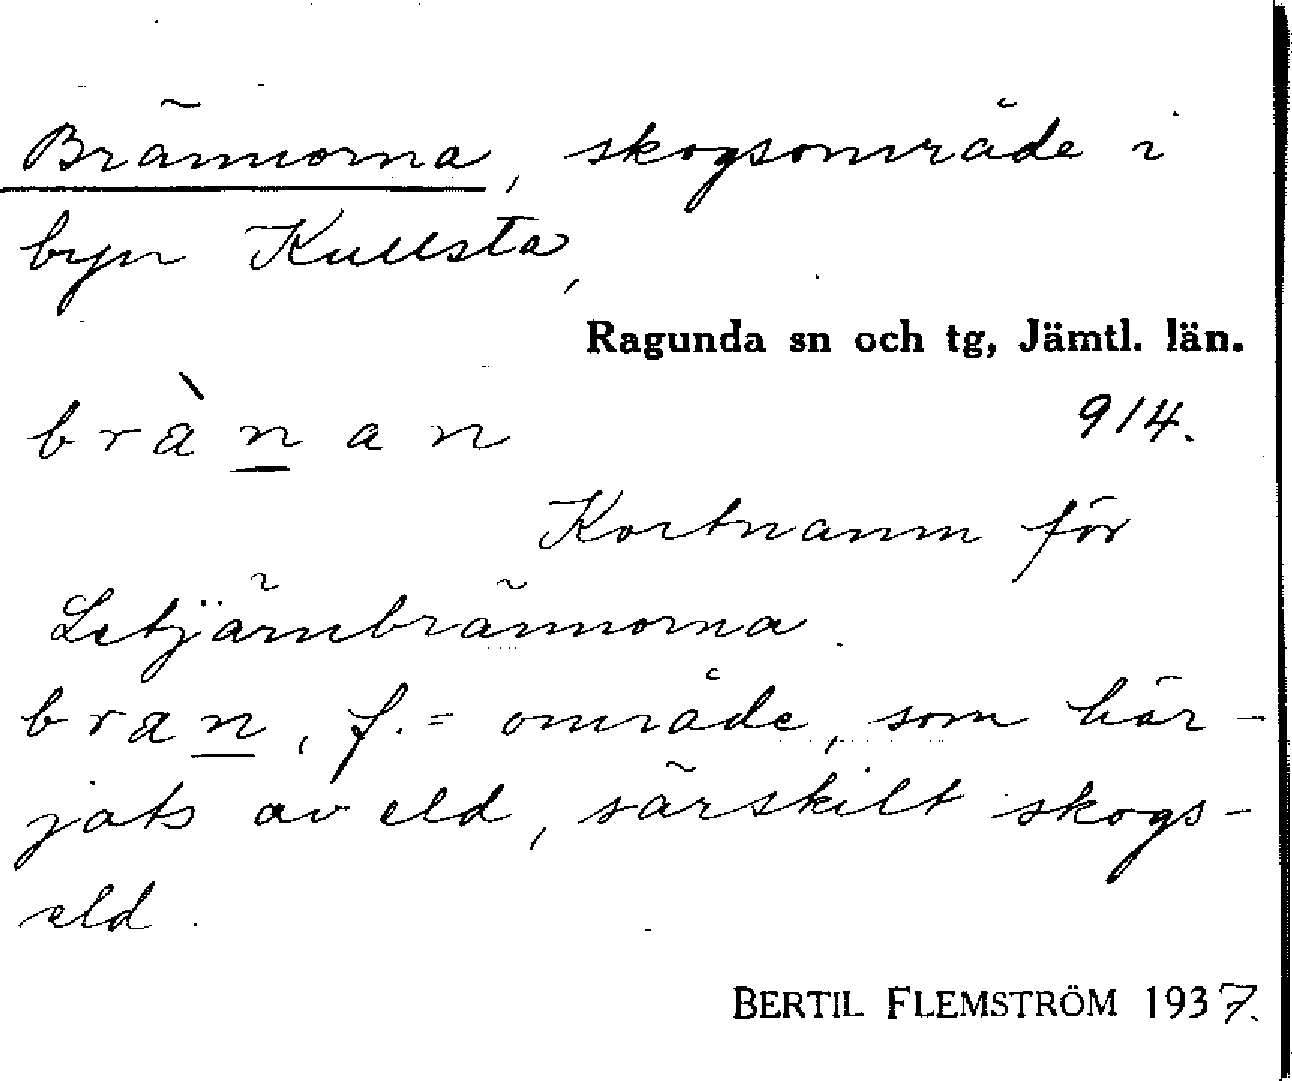 Brännorna, skogsområde i
byn Kullsta,
Ragunda sn och tg, Jämtl. län.
bràn̲an 914.
Kortnamn för
Letjärnbrännorna.
bran̲, f. = område, som här-
jats av eld, särskilt skogs-
eld.
BERTIL FLEMSTRÖM 1937.